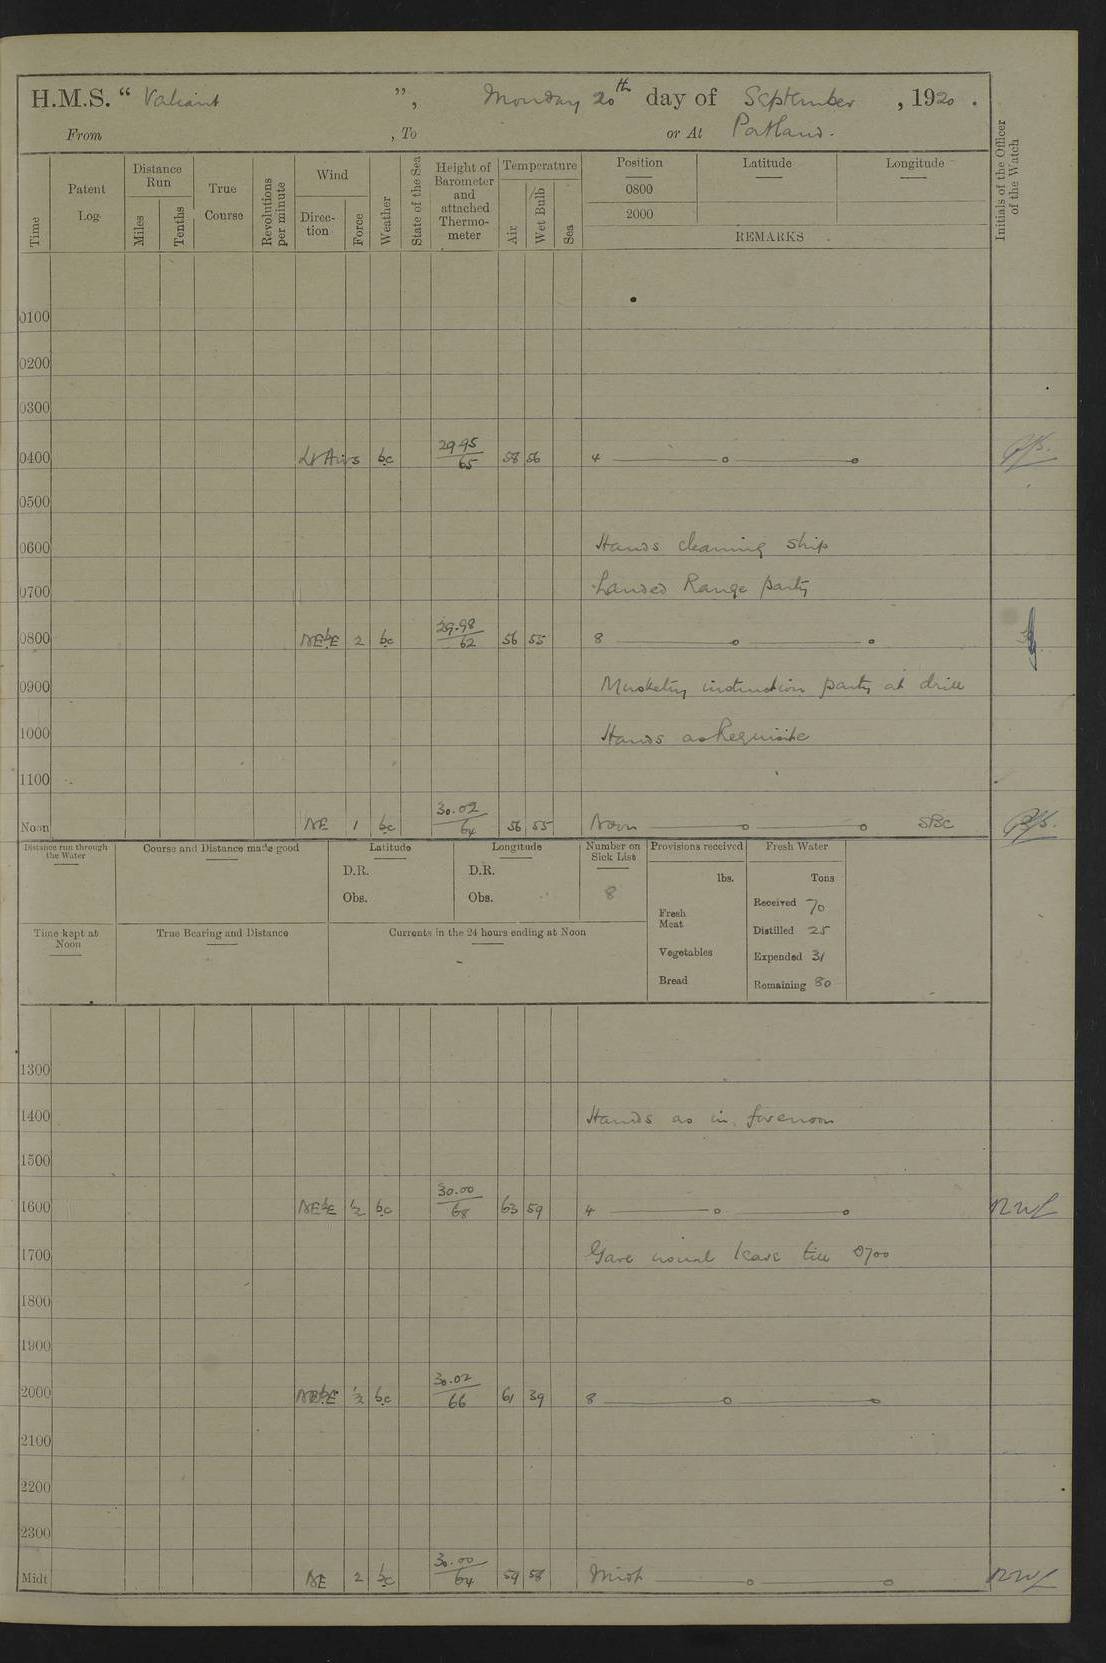 H.M.S. “ Valiant ”, Monday 20th day of September , 1920 .
From , To or At Portland.
Time
Patent Log
Distance Run
Miles
Tenths
True Course
Revolutions per minute
Wind
Direction
Force
Weather
State of the Sea
Height of Barometer and attached Thermometer
Temperature
Air
Wet Bulb
Sea
Position Latitude Longitude
0800
2000
REMARKS
Initials of the Officer of the Watch
0100
0200
0300
0400 Lt Airs bc 29.95/65 58 56 4
0500
0600 Hands cleaning ship
0700 Landed Range party
0800 NEbE 2 bc 29.98/62 56 55 8
0900 Musketry instruction party at drill
1000 Hands as Requisite
1100
Noon NE 1 bc 30.02/64 56 55 Noon SBC
Distance run through the Water
Course and Distance made good
Latitude
D.R.
Obs.
Longitude
D.R.
Obs.
Number on Sick List
8
Provisions received
lbs.
Fresh Meat
Vegetables
Bread
Fresh Water
Tons
Received 70
Distilled 25
Expended 31
Remaining 80
Time kept at Noon
True Bearing and Distance
Currents in the 24 hours ending at Noon
1300
1400 Hands as in forenoon
1500
1600 NEbE ½ bc 30.00/68 63 59 4
1700 Gave usual leave till 0700
1800
1900
2000 NEbE ½ bc 30.02/66 61 39 8
2100
2200
2300
Midt NE 2 bc 30.00/64 59 58 Midt